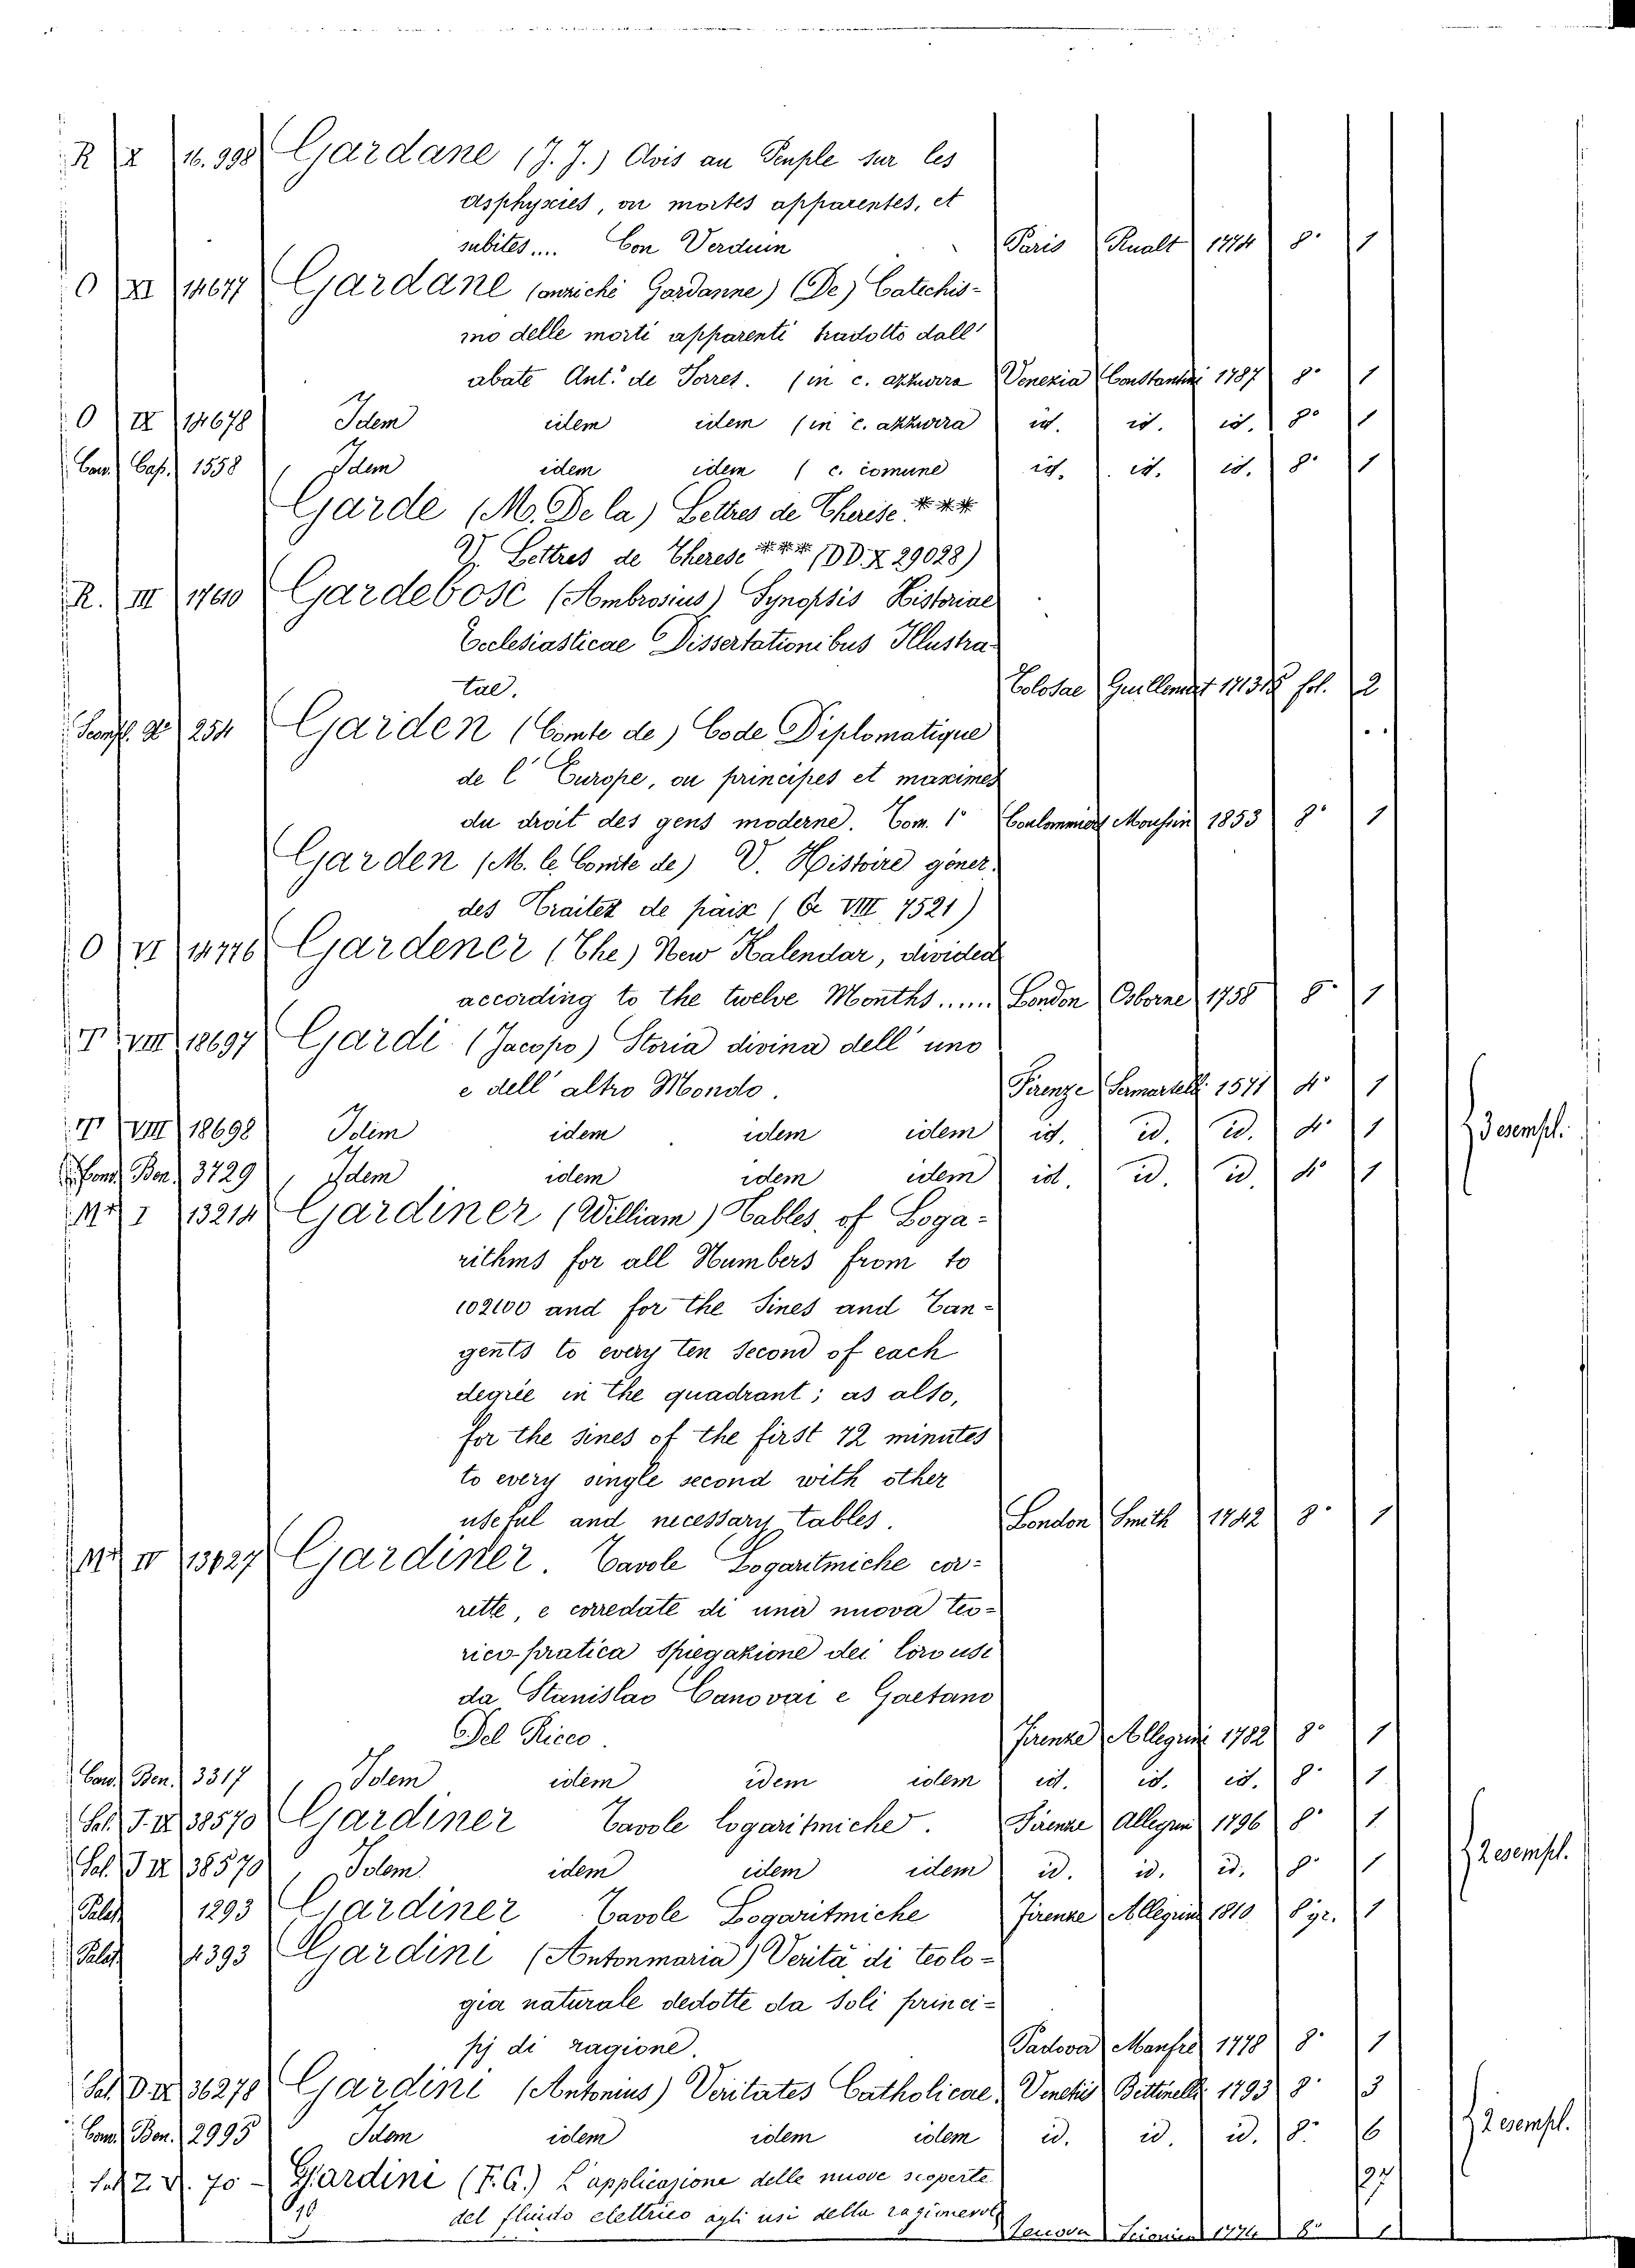 R X 16.998 Gardane (J. J.) Avis au Peuple sur les
asphyxies, ou mortes apparentes, et
subites.... Con Verduin Paris Rualt 1774 8° 1
O XI 14677 Gardane (anzichè Gardanne) (De) Catechis-
mo delle morti apparenti tradotto dall'
abate Ant. de Torres. (in c. azzurra Venezia Constantini 1787 8° 1
O IX 14678 Idem idem idem (in c. azzurra id. id. id. 8° 1
Con. Cap. 1558 Idem idem idem ( c. comune id. id. id. 8° 1
Garde (M. De la) Lettres de Therese ***
V. Lettres de Therese *** (DD. X 29028)
R. III 17610 Gardebosc (Ambrosius) Synopsis Historiae
Ecclesiasticae Dissertationibus Illustra-
tae. Tolosae Guillemat fol. 2
254 Garden (Comte de) Code Diplomatique
de l'Europe, ou principes et maximes
du droit des gens moderne. Tom. 1° Coulommiers Moussin 1853 8° 1
Garden (M. le Comte de) V. Histoire géner.
des Traitez de paix ( VIII 7521)
O VI 14776 Gardener (The) New Kalendar, divided
according to the twelve Months...... London Osborne 1758 8° 1
T VIII 18697 Gardi (Jacopo) Storia divina dell'uno
e dell'altro Mondo. Firenze Sermartelli 1571 4° 1
T VIII 18698 Idem idem idem idem id. id. id. 4° 1 3 esempl.
Cons. Ben. 3729 Idem idem idem idem id. id. id. 4° 1
I 13214 Gardiner (William) Tables of Loga-
rithms for all Numbers from to
102100 and for the Sines and Tan-
gents to every ten second of each
degree in the quadrant; as also,
for the sines of the first 72 minutes
to every single second with other
useful and necessary tables. London Smith 1742 8° 1
IV 13427 Gardiner. Tavole Logaritmiche cor-
rette, e corredate di una nuova teo-
rico-pratica spiegazione dei loro usi
da Stanislao Canovai e Gaetano
Del Ricco. Firenze Allegrini 1782 8° 1
Con. Ben. 3317 Idem idem idem idem id. id. id. 8° 1
Sal. J. IX 38570 Gardiner Tavole logaritmiche. Firenze Allegrini 1796 8° 1
Sal. J IX 38570 Idem idem idem idem id. id. id. 8° 1 2 esempl.
Palat. 1293 Gardiner Tavole Logaritmiche Firenze Allegrini 1810 8 gr. 1
Palat. 4393 Gardini (Antonmaria) Verità di teolo-
gia naturale dedotte da soli princi-
pj di ragione. Padova Manfrè 1778 8° 1
Sal. D. IX 36278 Gardini (Antonius) Veritates Catholicae. Venetiis Bettinelli 1793 8° 3
Con. Ben. 2995 Idem idem idem idem id. id. id. 8° 6 2 esempl.
Sal. Z. V. 70- Gardini (F. G.) L'applicazione delle nuove scoperte
del fluido elettrico agli usi della ragionevol
Genova Scionico 1774 8° 1